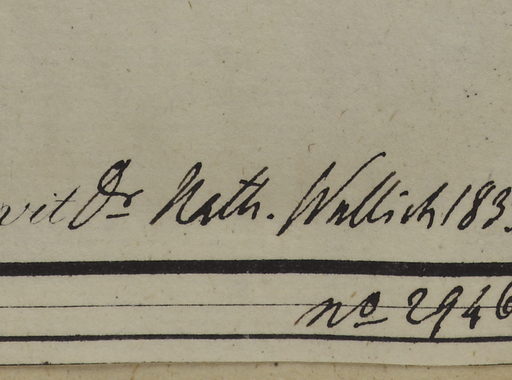 Dr Nath. Wallich 183
no 2946